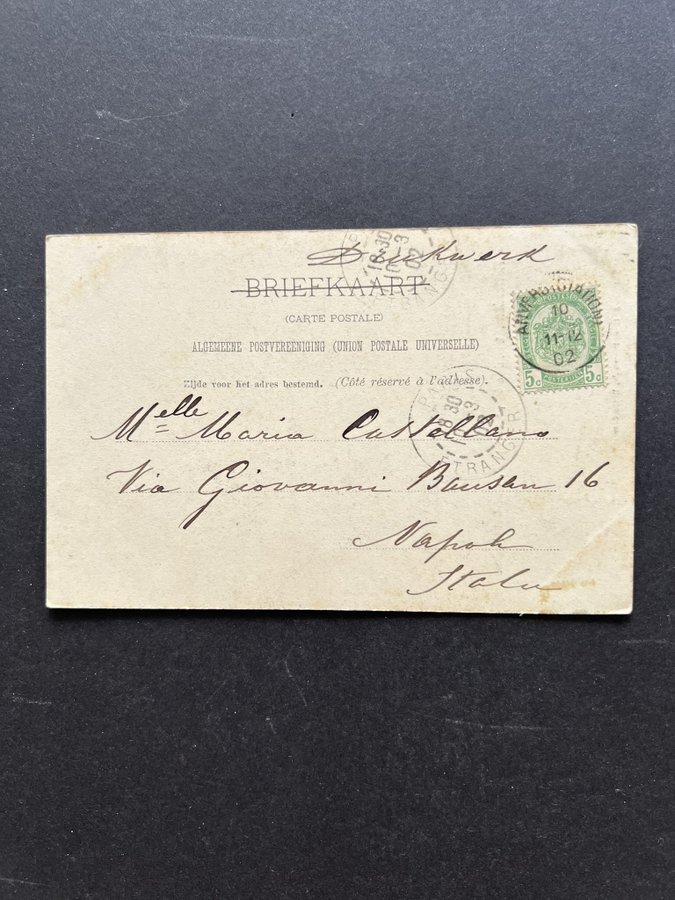 Drukwerk
BRIEFKAART
(CARTE POSTALE)
ALGEMEENE POSTVEREENIGING (UNION POSTALE UNIVERSELLE)
Zijde voor het adres bestemd. (Côté réservé à l'adresse).
Melle Maria Castellano
Via Giovanni Bausan 16
Napoli
Italie
ANVERS (STATION)
10
11-12
02
5c 5c
PARIS
18 30
ETRANGER
18 30
02